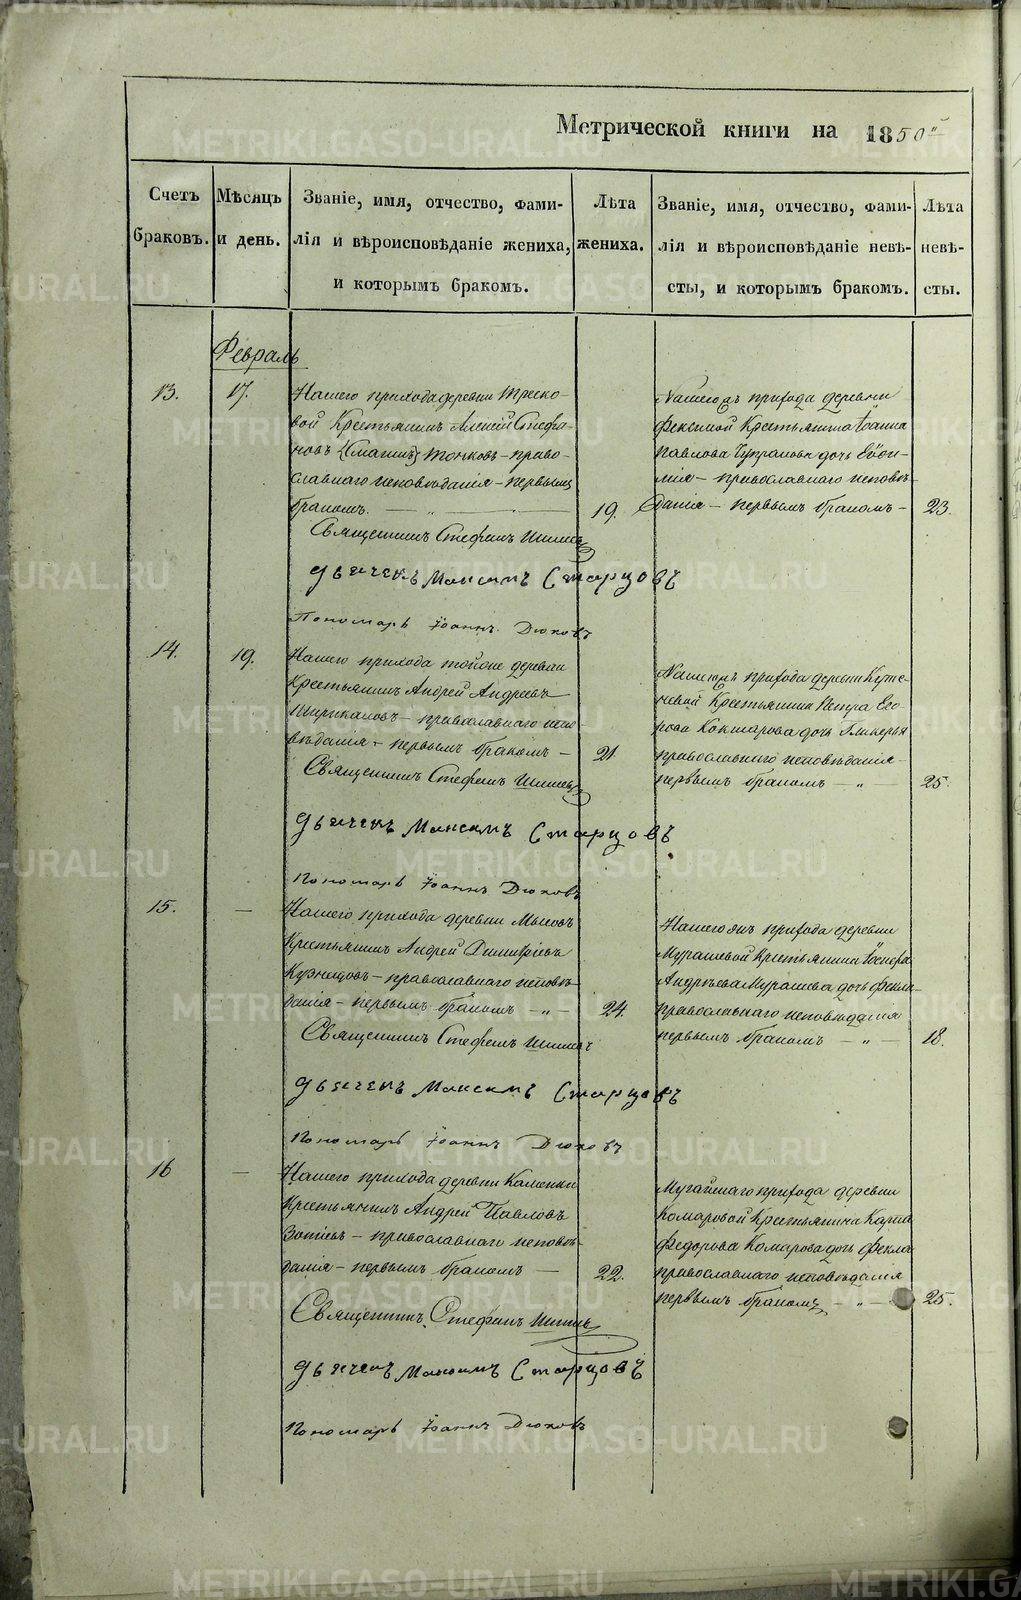 Метрической книги на 1850й
Счетъ браковъ.
Мѣсяцъ и день.
Званіе, имя, отчество, фами-
лія и вѣроисповѣданіе жениха,
и которымъ бракомъ.
Лѣта
жениха.
Званіе, имя, отчество, фами-
лія и вѣроисповѣданіе невѣ-
сты, и которымъ бракомъ.
Лѣта
невѣ-
сты.
Февраль
13.
17.
Нашего прихода деревни Треско-
вой Крестьянинъ Алексій Стефа-
новъ Тонковъ – право-
славнаго исповѣданія – первымъ
бракомъ.
19.
Священникъ Стефанъ
Дьячекъ Максимъ Старцовъ
Пономарь Іоаннъ Дюковъ
прихода деревни
Крестьянина Іоанна
Павлова дочь Евѳи-
мія – православнаго исповѣ-
данія – первымъ бракомъ –
23.
14.
19.
Нашего прихода тойже деревни
Крестьянинъ Андрей Андреевъ
православнаго испо
вѣданія – первымъ бракомъ –
21
Священникъ Стефанъ
Дьячекъ Максимъ Старцовъ
Пономарь Іоаннъ Дюковъ
прихода деревни
Крестьянина Петра Его-
рова Кокшарова дочь Гликерья
православнаго исповѣданія
первымъ бракомъ – „ –
25.
15.
–
Нашего прихода деревни Мысовъ
Крестьянинъ Андрей Димитріевъ
Кузнецовъ – православнаго исповѣ-
данія – первымъ бракомъ – „ –
24.
Священникъ Стефанъ
Дьячекъ Максимъ Старцовъ
Пономарь Іоаннъ Дюковъ
Нашего жъ прихода деревни
Мурашевой Крестьянина
Андреева Мурашева дочь Фекла
православнаго исповѣданія
первымъ бракомъ – „ –
18.
16
–
Нашего прихода деревни Каменки
Крестьянинъ Андрей Павловъ
Зотіевъ – православнаго исповѣ-
данія – первымъ бракомъ –
22.
Священникъ Стефанъ
Дьячекъ Максимъ Старцовъ
Пономарь Іоаннъ Дюковъ
Мугайскаго прихода деревни
Комаровой Крестьянина Карпа
Федорова Комарова дочь Фекла
православнаго исповѣданія
первымъ бракомъ – „ –
25.
METRIKI.GASO-URAL.RU